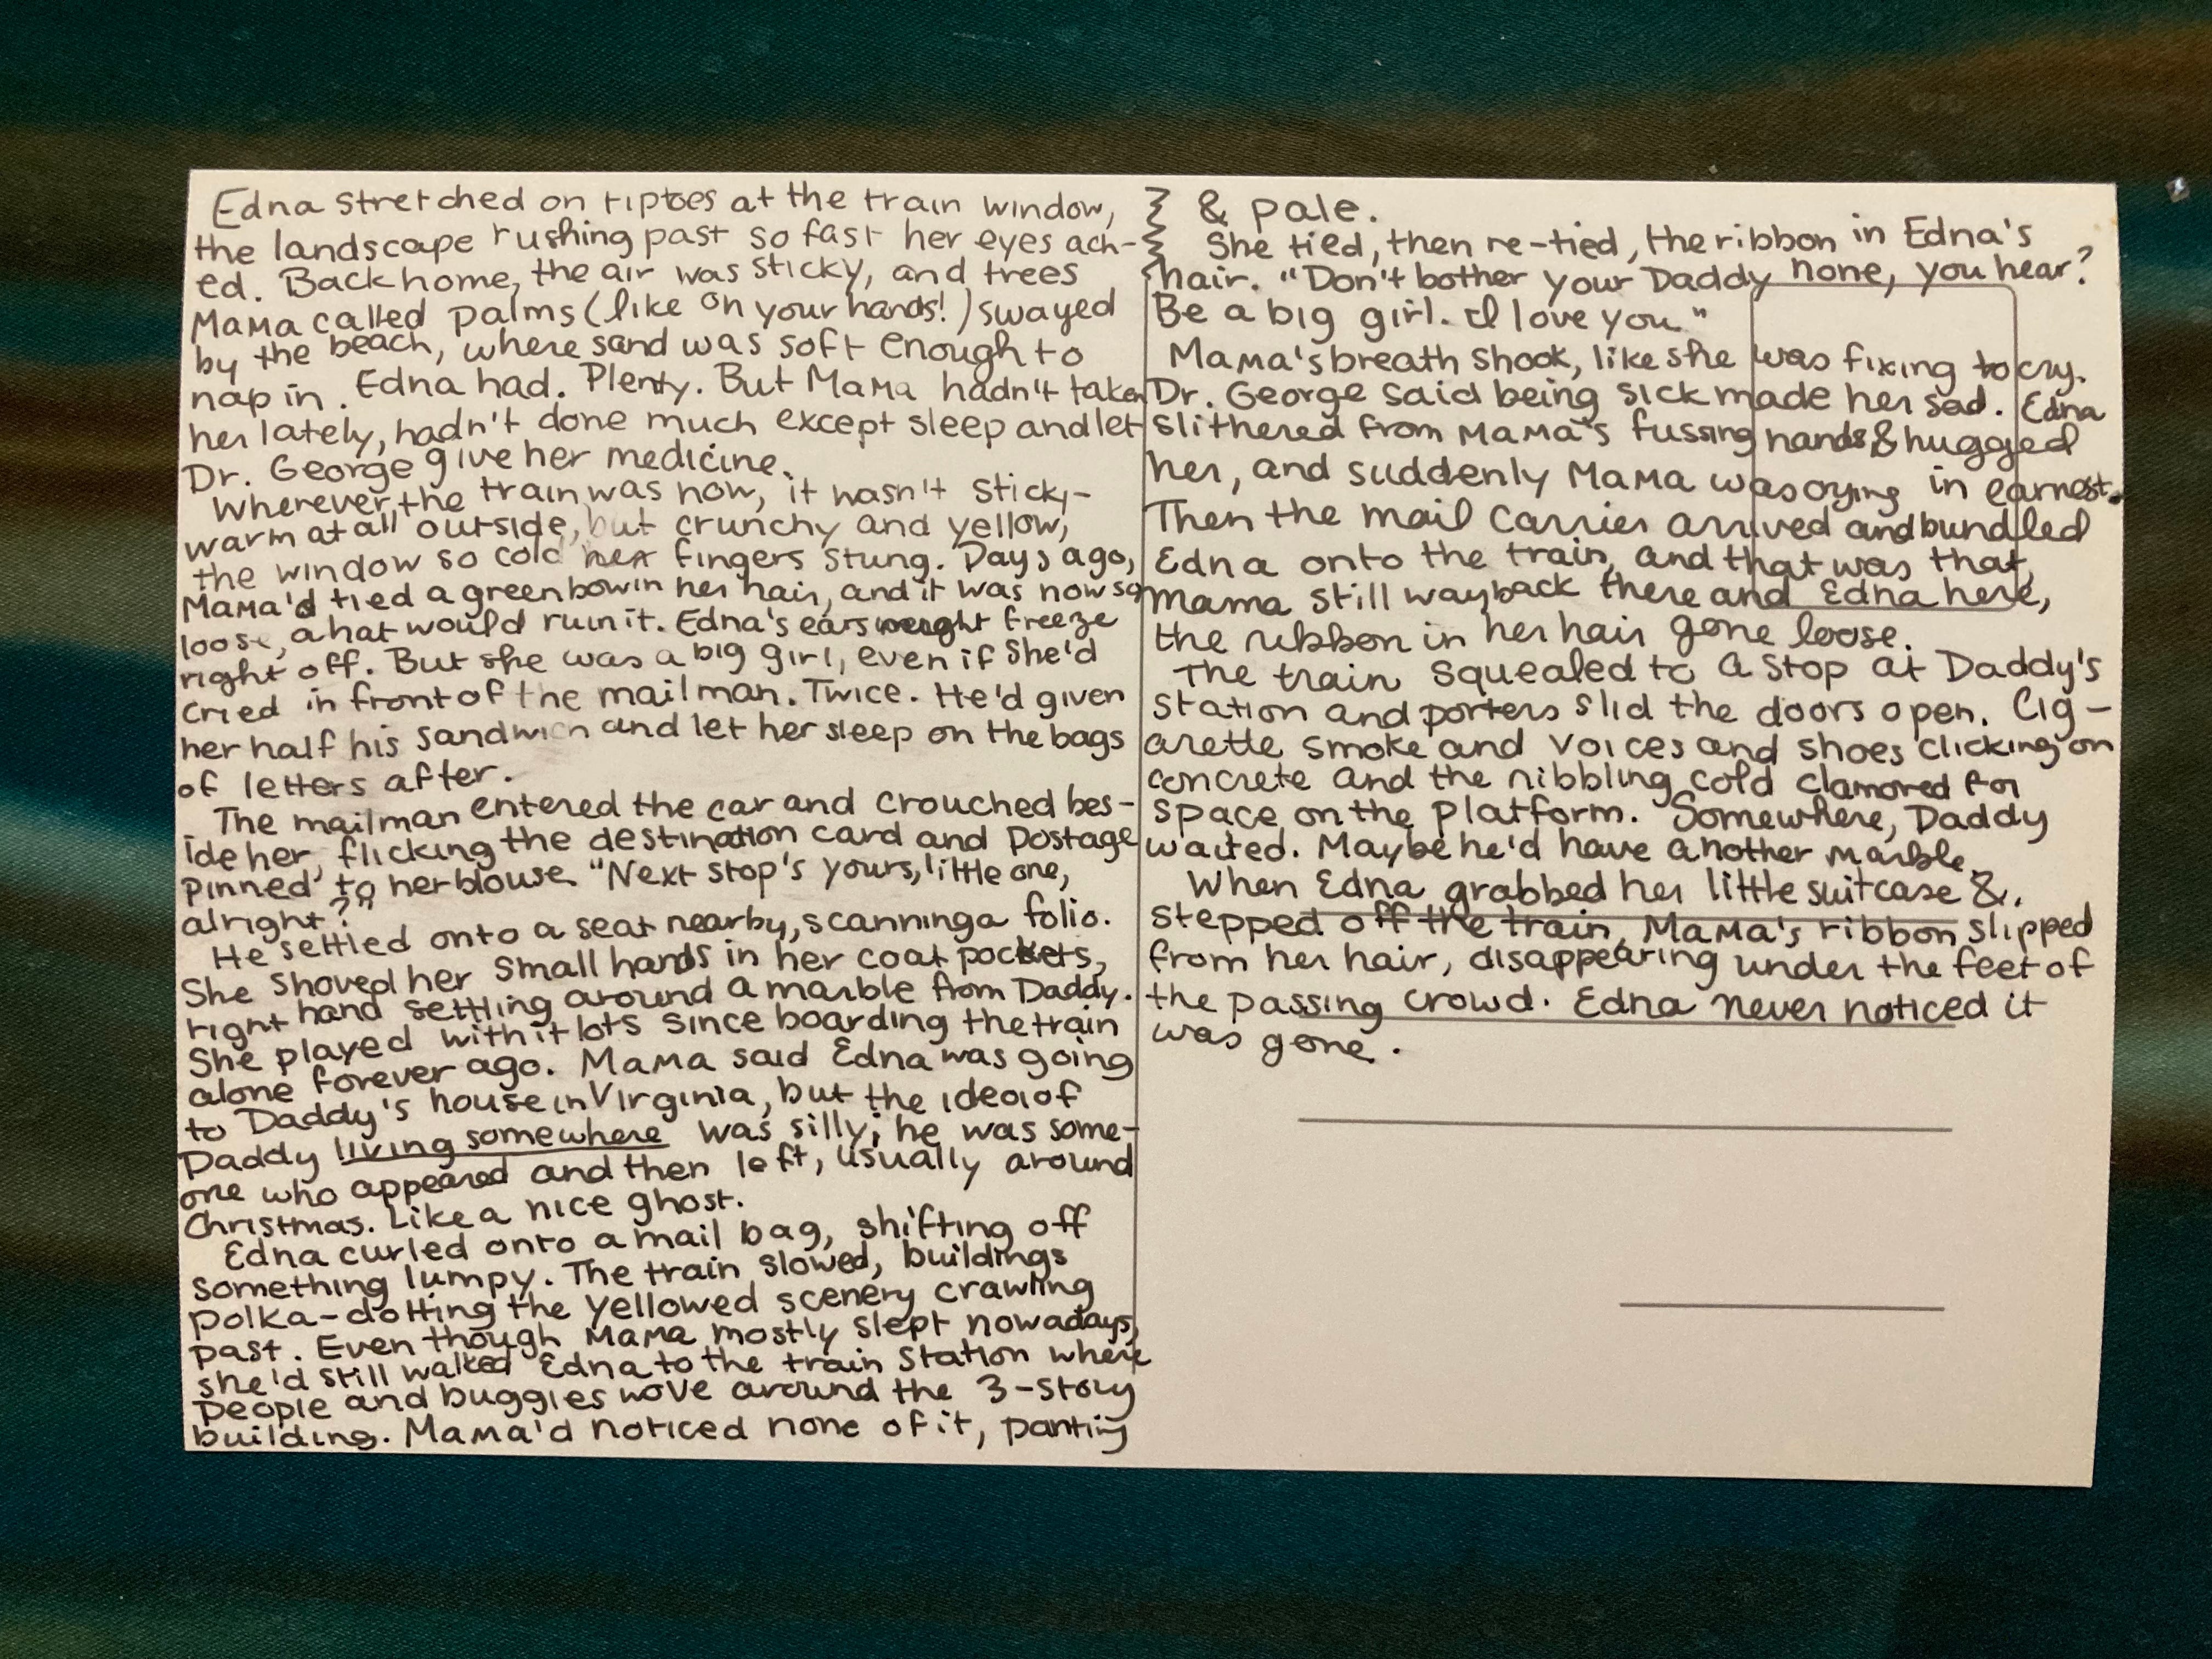 Edna stretched on tiptoes at the train window,
the landscape rushing past so fast her eyes ach-
ed. Back home, the air was sticky, and trees
Mama called palms (like on your hands!) swayed
by the beach, where sand was soft enough to
nap in. Edna had. Plenty. But Mama hadn't taken
her lately, hadn't done much except sleep and let
Dr. George give her medicine.
Wherever the train was now, it wasn't sticky-
warm at all outside, but crunchy and yellow,
the window so cold her fingers stung. Days ago,
Mama'd tied a green bow in her hair, and it was now so
loose, a hat would ruin it. Edna's ears might freeze
right off. But she was a big girl, even if she'd
cried in front of the mailman. Twice. He'd given
her half his sandwich and let her sleep on the bags
of letters after.
The mailman entered the car and crouched bes-
ide her, flicking the destination card and postage
pinned to her blouse. "Next stop's yours, little one,
alright?"
He settled onto a seat nearby, scanning a folio.
She shoved her small hands in her coat pockets,
right hand settling around a marble from Daddy.
She played with it lots since boarding the train
alone forever ago. Mama said Edna was going
to Daddy's house in Virginia, but the idea of
Daddy living somewhere was silly; he was some-
one who appeared and then left, usually around
Christmas. Like a nice ghost.
Edna curled onto a mail bag, shifting off
something lumpy. The train slowed, buildings
polka-dotting the yellowed scenery crawling
past. Even though Mama mostly slept nowadays,
she'd still walked Edna to the train station where
people and buggies wove around the 3-story
building. Mama'd noticed none of it, panting
& pale.
She tied, then re-tied, the ribbon in Edna's
hair. "Don't bother your Daddy none, you hear?
Be a big girl. I love you."
Mama's breath shook, like she was fixing to cry.
Dr. George said being sick made her sad. Edna
slithered from Mama's fussing hands & hugged
her, and suddenly Mama was crying in earnest.
Then the mail carrier arrived and bundled
Edna onto the train, and that was that,
Mama still way back there and Edna here,
the ribbon in her hair gone loose.
The train squealed to a stop at Daddy's
station and porters slid the doors open. Cig-
arette smoke and voices and shoes clicking on
concrete and the nibbling cold clamored for
space on the platform. Somewhere, Daddy
waited. Maybe he'd have another marble.
When Edna grabbed her little suitcase &
stepped off the train, Mama's ribbon slipped
from her hair, disappearing under the feet of
the passing crowd. Edna never noticed it
was gone.